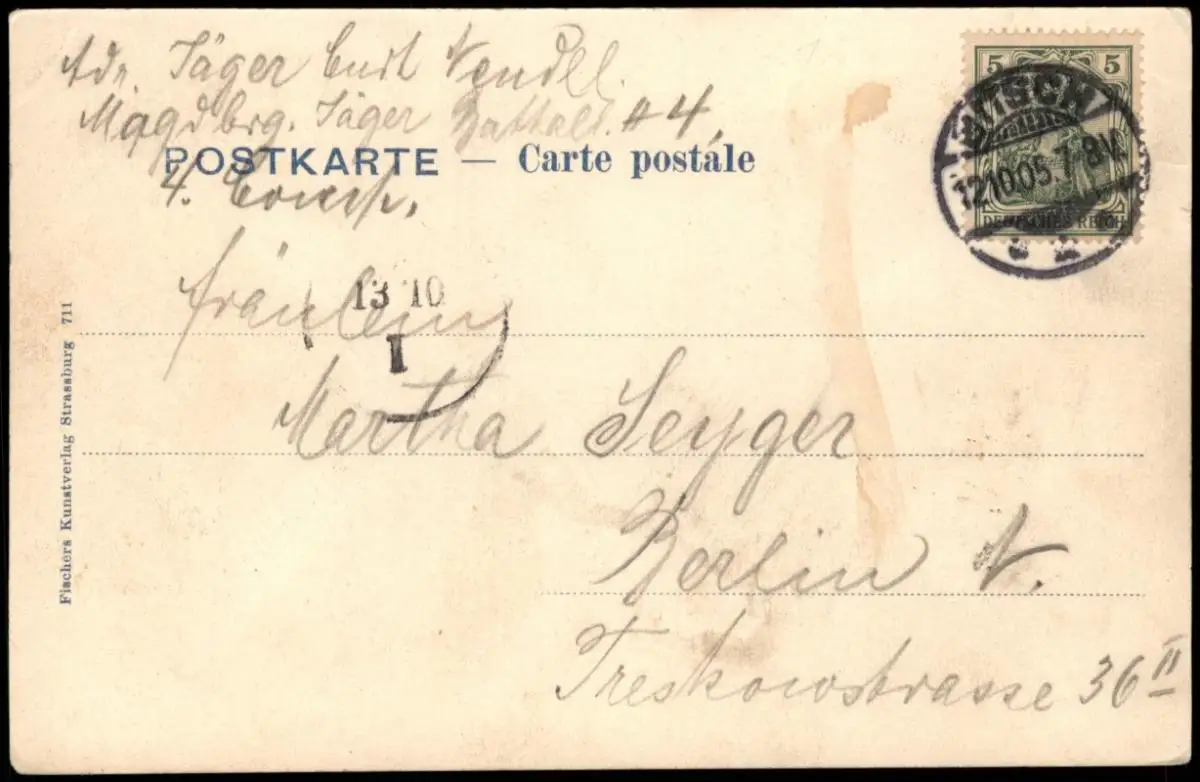 Adr. Jäger Curt Wendel.
Magdbrg. Jäger Battall. # 4,
POSTKARTE — Carte postale
4. Comp.
Fräulein
13 10
I
Martha Seyger
Berlin N.
Treskowstrasse 36 II
Fischers Kunstverlag Strassburg 711
5 5
12.10.05. 7-8 N.
DEUTSCHES REICH